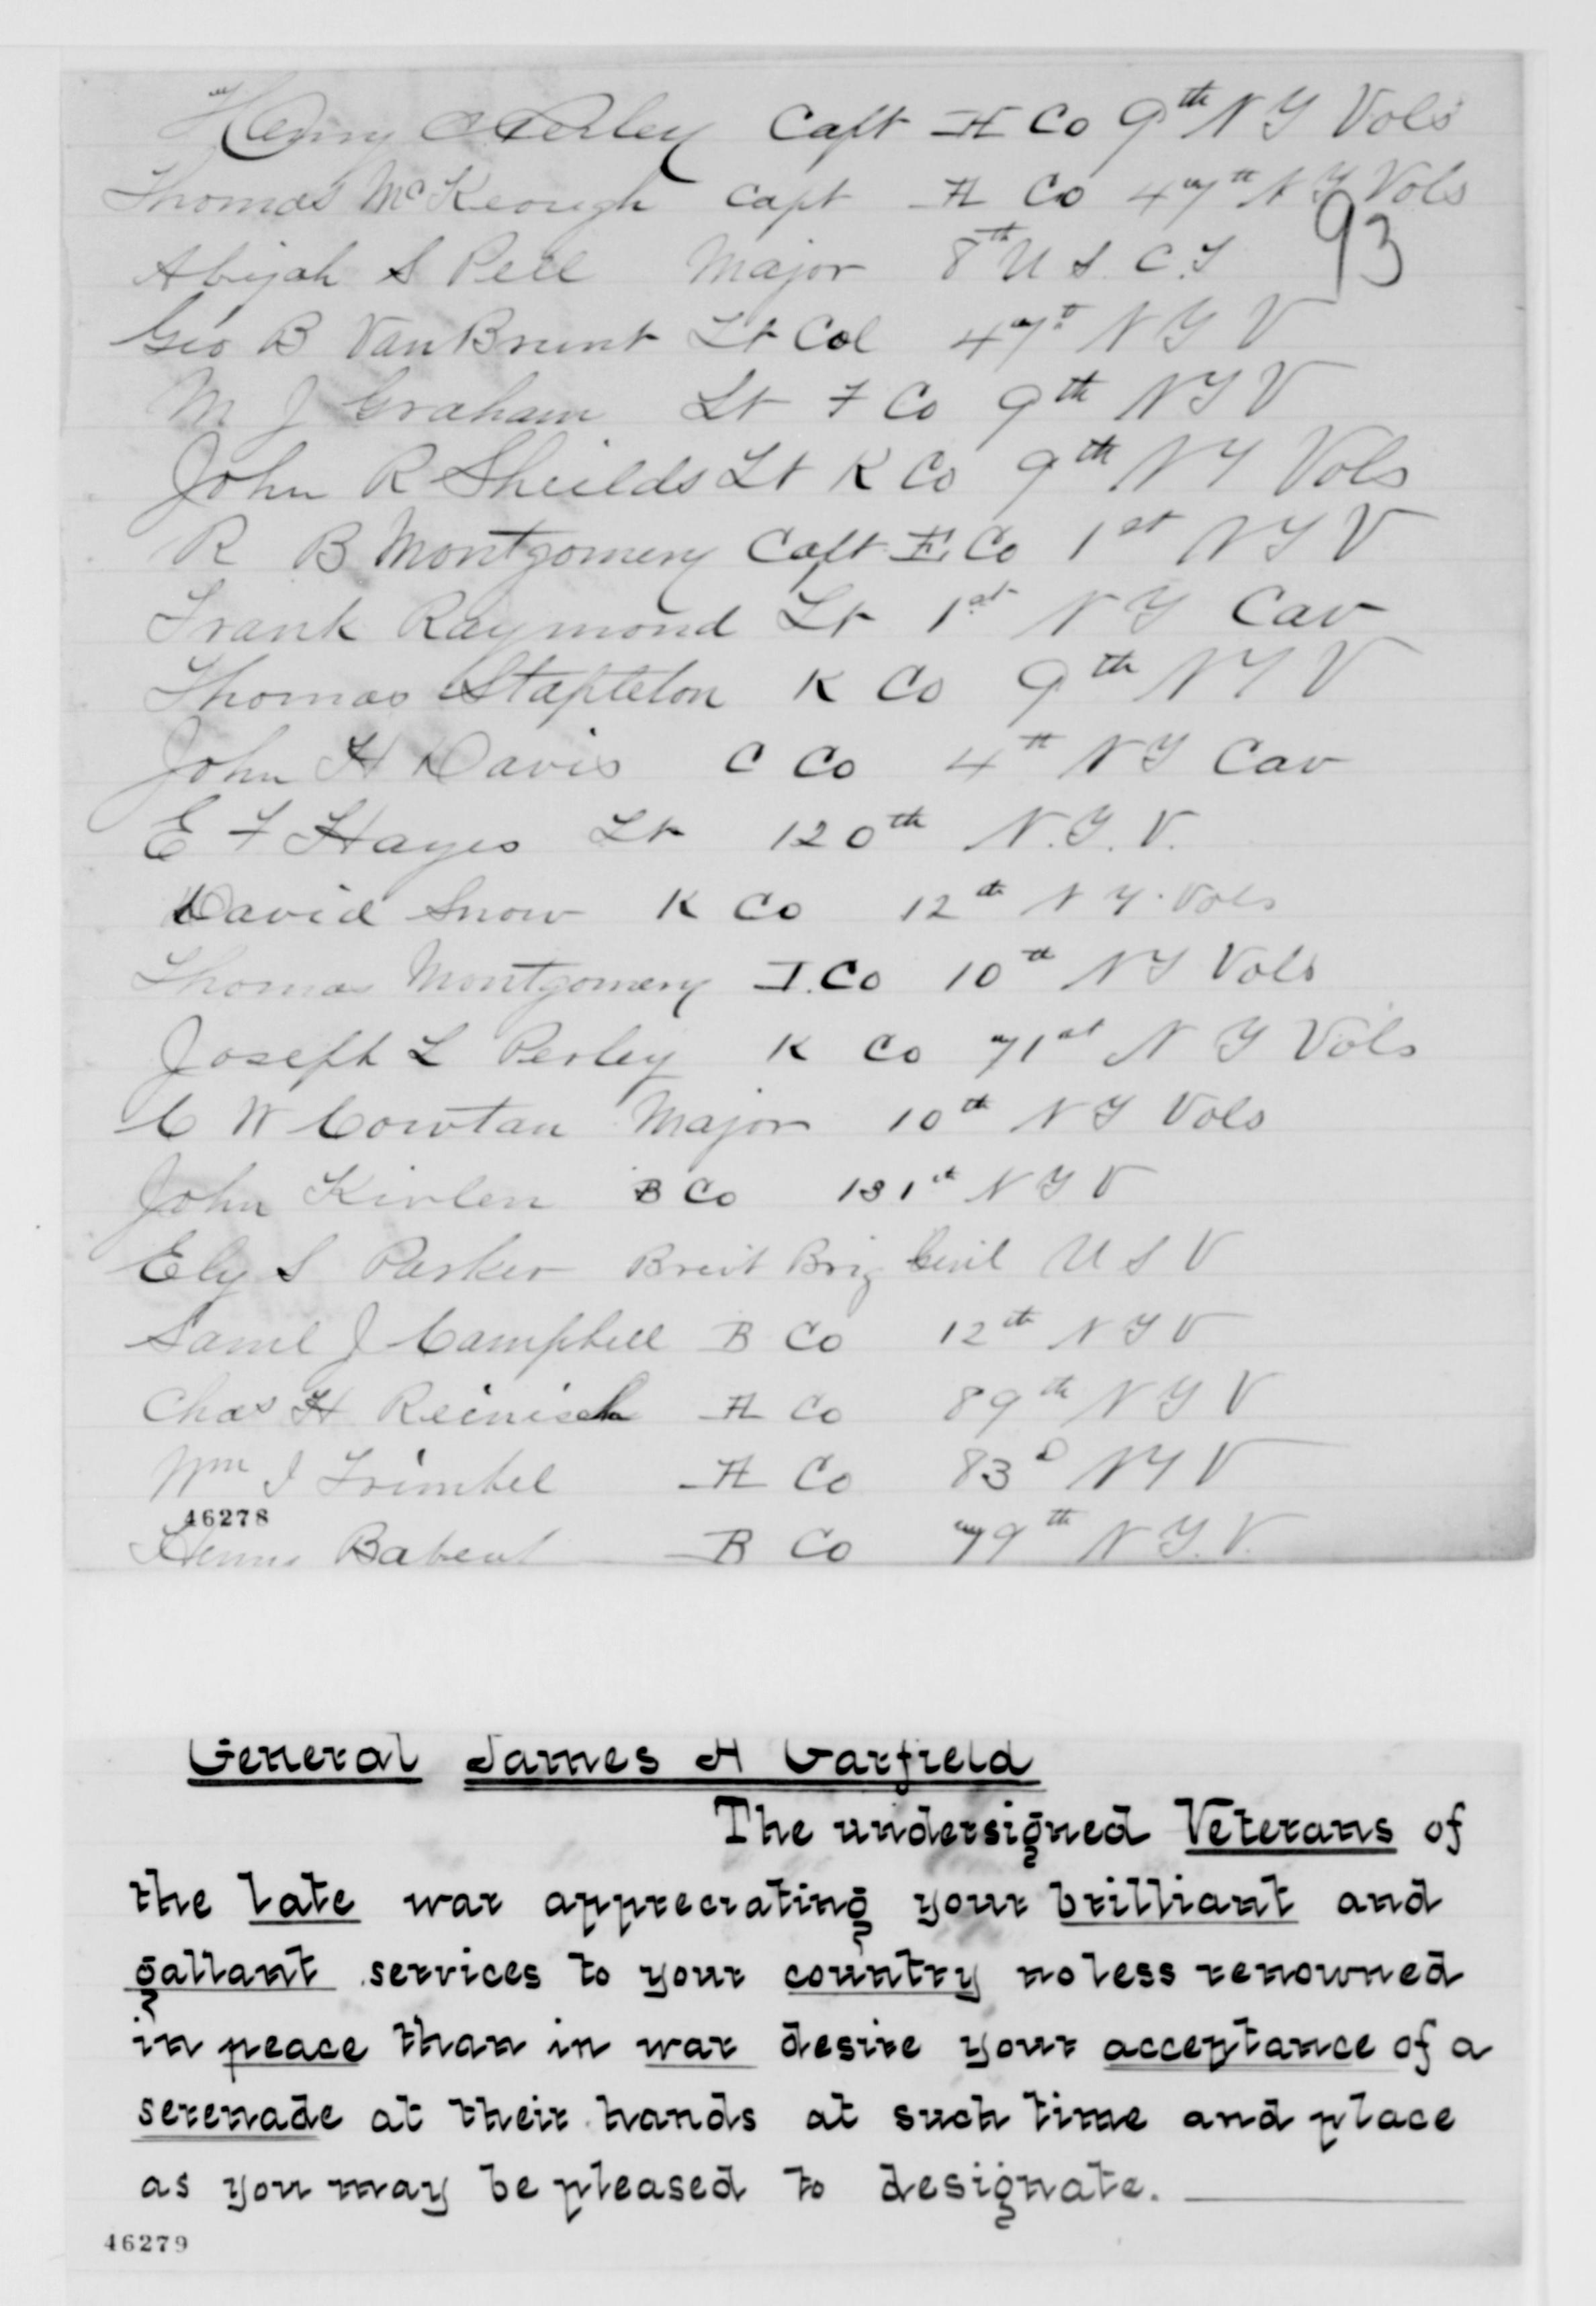 Henry C Perley Capt H Co 9th N Y Vols
Thomas McKeough Capt A Co 47th N Y Vols
93
Abijah S Pell Major 8th U S. C. T
Geo B Van Brunt Lt Col 47th N Y V
M J Graham Lt F Co 9th N Y V
John R Sheilds Lt K Co 9th N Y Vols
R B Montgomery Capt E Co 1st N Y V
Frank Raymond Lt 1st N Y Cav
Thomas Stapleton K Co 9th N Y V
John H Davis C Co 4th N Y Cav
E F Hayes Lt 120th N. Y. V.
David Snow K Co 12th N Y. Vols
Thomas Montgomery I. Co 10th N Y Vols
Joseph L Perley K Co 71st N Y Vols
C W Cowtan Major 10th N Y Vols
John Kivlen B Co 131st N Y V
Ely S Parker Brevt Brig Genl U S V
Saml J Campbell B Co 12th N Y V
Chas H Reinisch A Co 89th N Y V
Wm J Trimbel A Co 83d N Y V
46278
B Co 79th N Y. V.
General James A Garfield
The undersigned Veterans of
the late war appreciating your brilliant and
gallant services to your country no less renowned
in peace than in war desire your acceptance of a
serenade at their hands at such time and place
as you may be pleased to designate.
46279